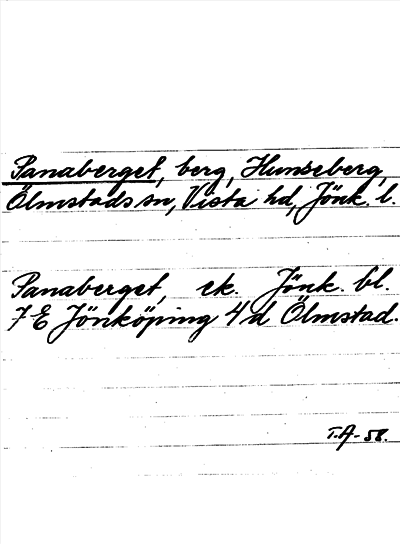 Panaberget, berg, Hunseberg,
Ölmstads sn, Vista hd, Jönk. l.
Panaberget, ek. Jönk. bl.
7 E Jönköping 4 d Ölmstad.
T.A-58.